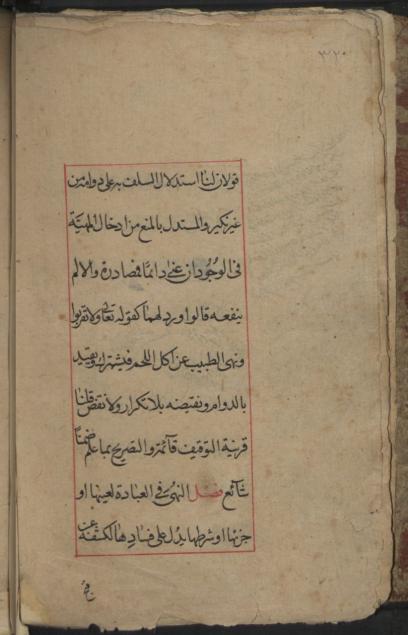 ٣٢٠
قولان لنا استدلال السلف به على دوامه من
غير نكير والمستدل بالمنع من ادخال المهية
فى الوجود ان عنى دائما فمصادرة والا لم
ينفعه قالوا ورد لهما كقوله تعالى ولا تقربوا
ونهى الطبيب عن اكل اللحم فيشترك ويقيد
بالدوام ونقيضه بلا تكرار ولا نقض قلنا
قرينة التوقيف قائمة والتصريح بما علم ضمنا
شائع فصل النهى فى العبادة لعينها او
جزئها او شرطها يدل على فسادها لكشفه عن